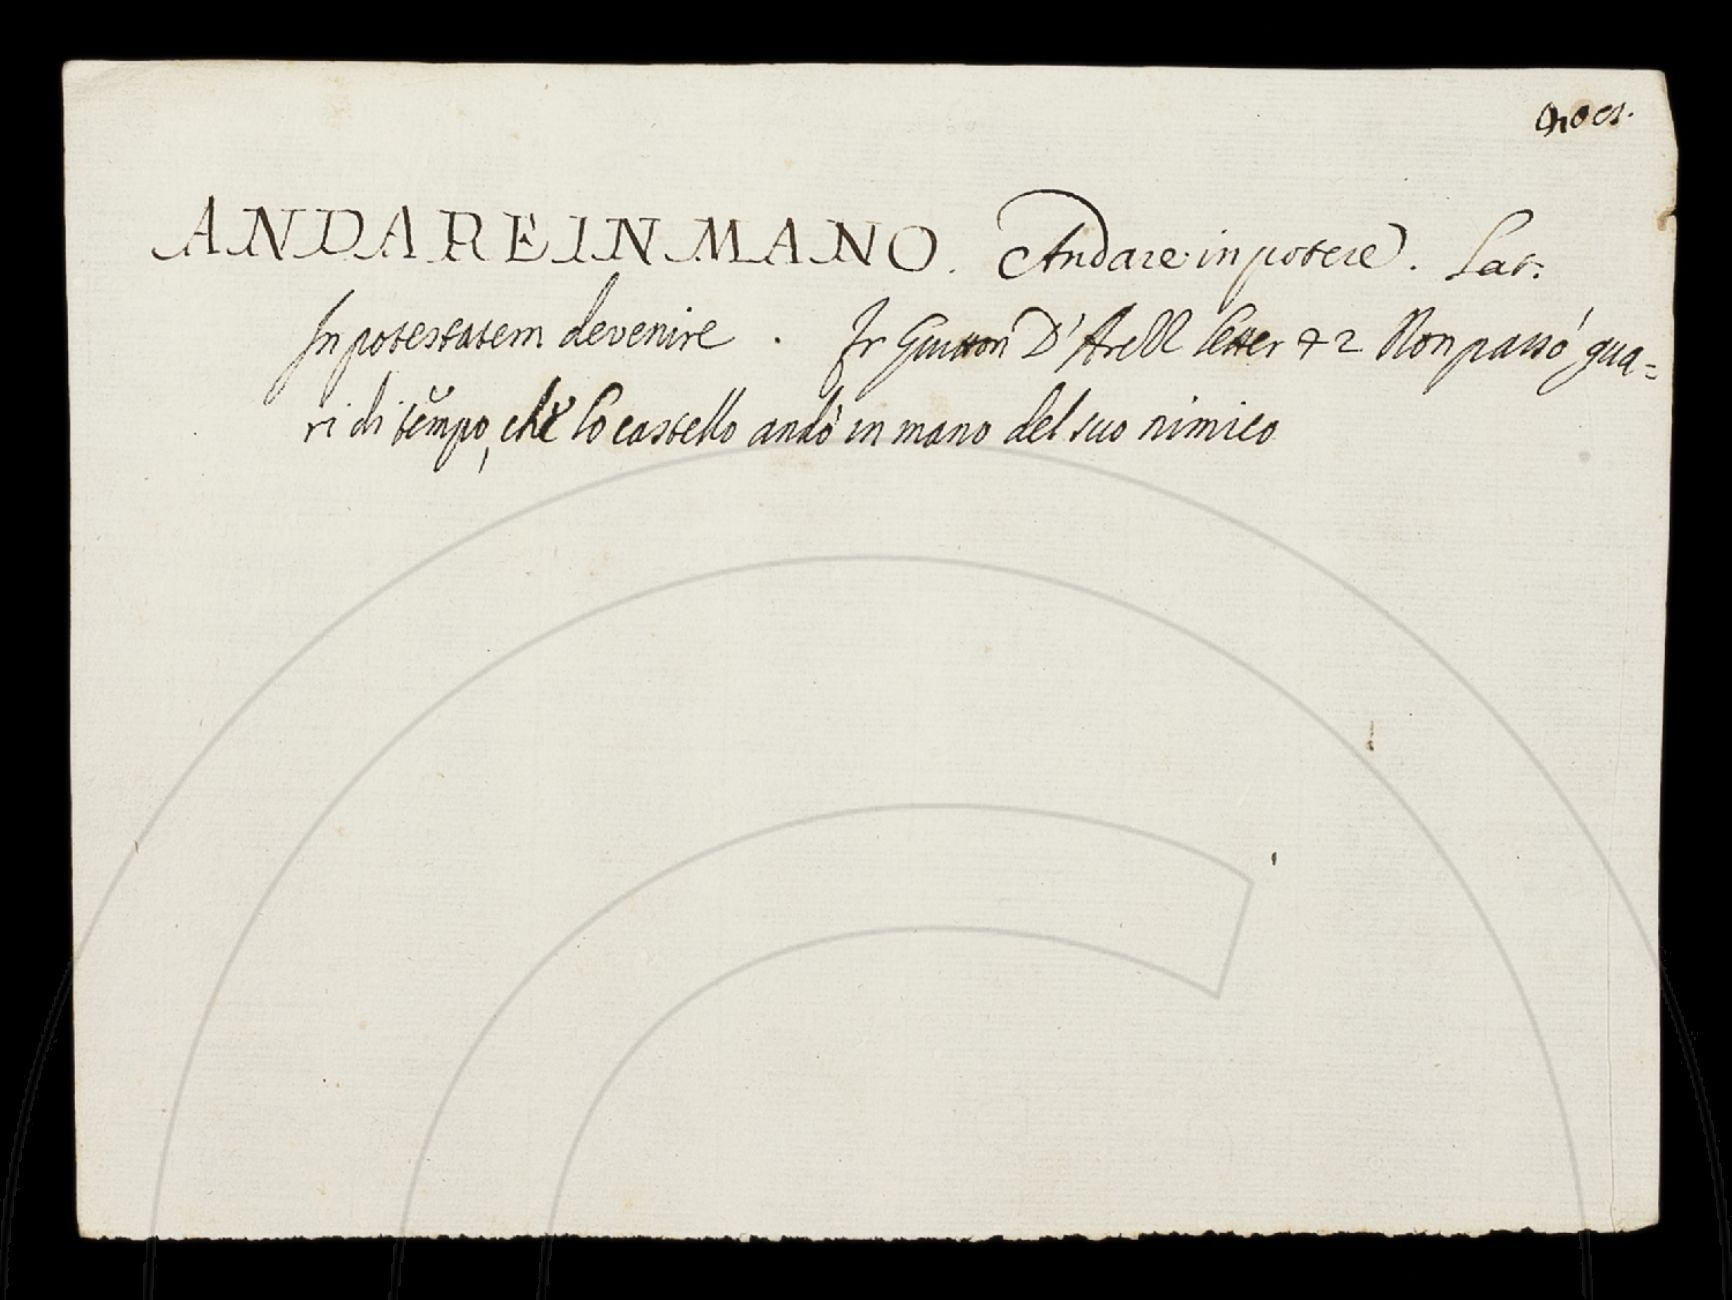 ANDARE IN MANO. Andare in potere. Lat:
In potestatem devenire. Fr Guitton D'Arezz letter 42 Non passó gua=
ri di tempo, che lo castello andò in mano del suo nimico